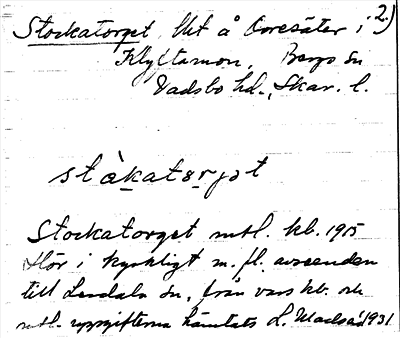 Stockatorget, lht å Oresäter i 2)
Klyftamon, Bergs sn
Vadsbo hd., Skar. l.
stàkatɷrjət
Stockatorget mtl. kb. 1915
Hör i kyrkligt m. fl. avseenden
till Lerdala sn, från vars kb. och
mtl. uppgifterna hämtats L. Madsén 1931